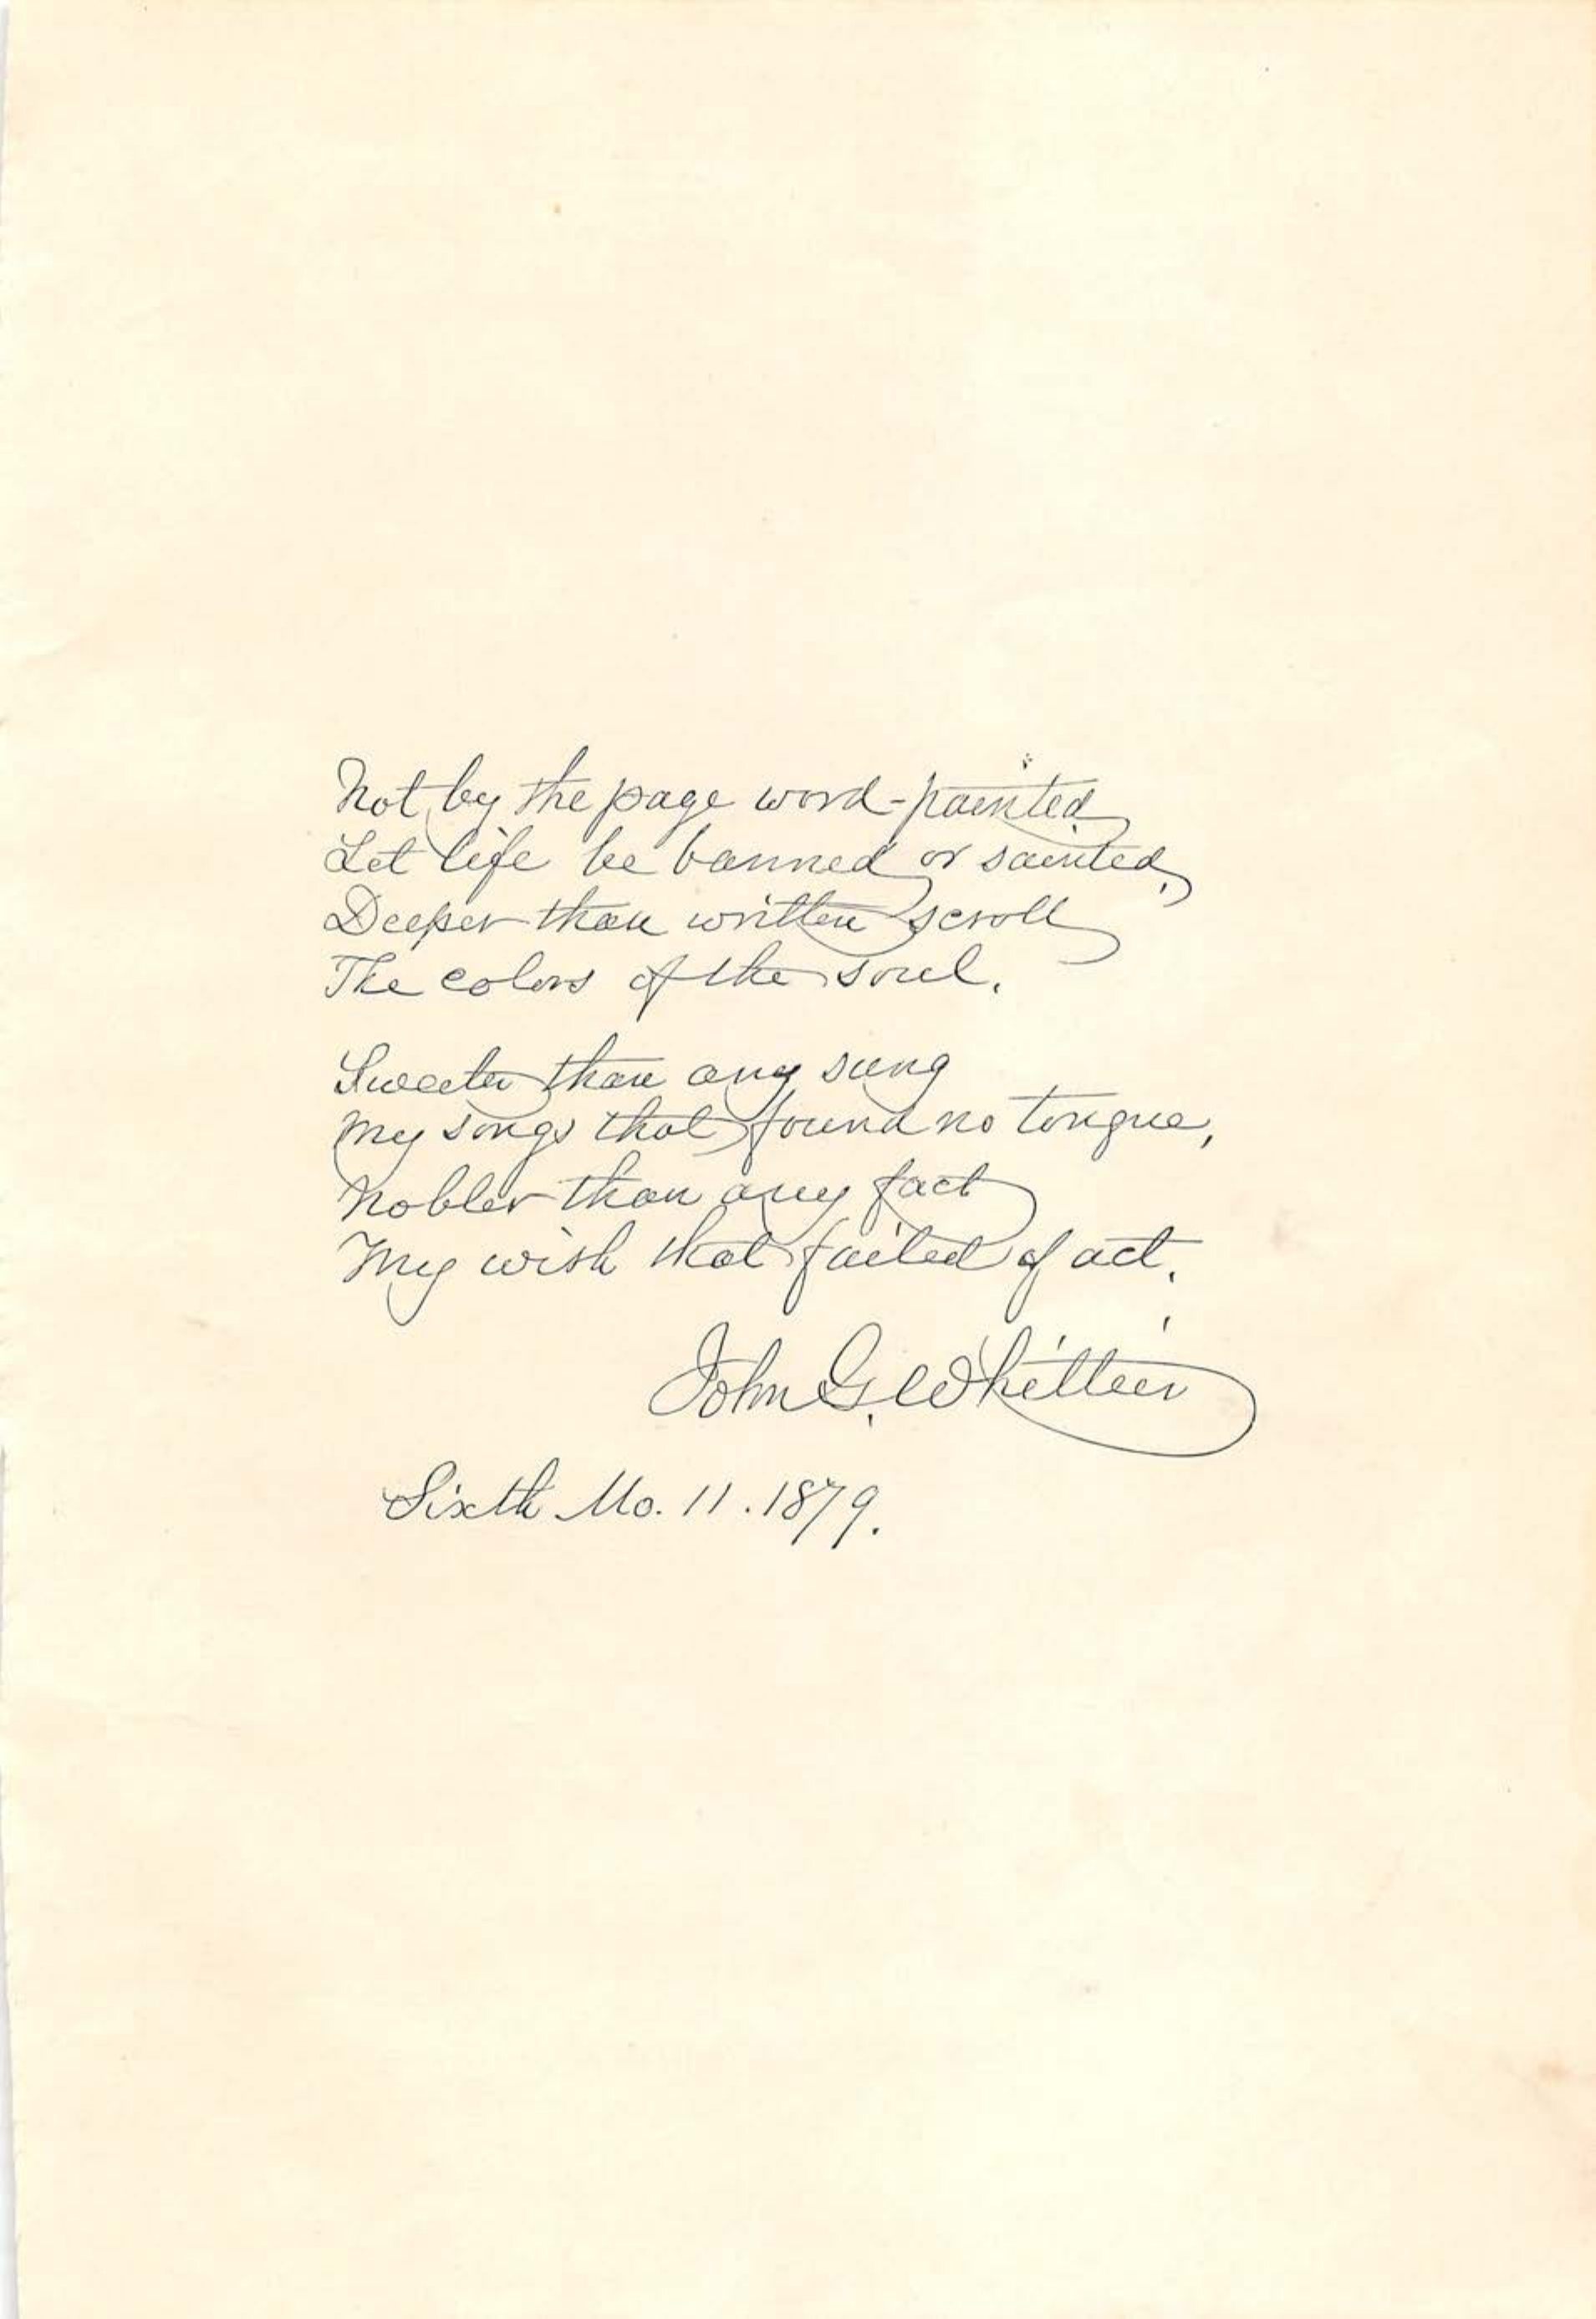 Not by the page word-painted
Let life be banned or sainted,
Deeper than written scroll
The colors of the soul.
Sweeter than any sung
My songs that found no tongue,
Nobler than any fact
My wish that failed of act.
John G. Whittier
Sixth Mo. 11. 1879.